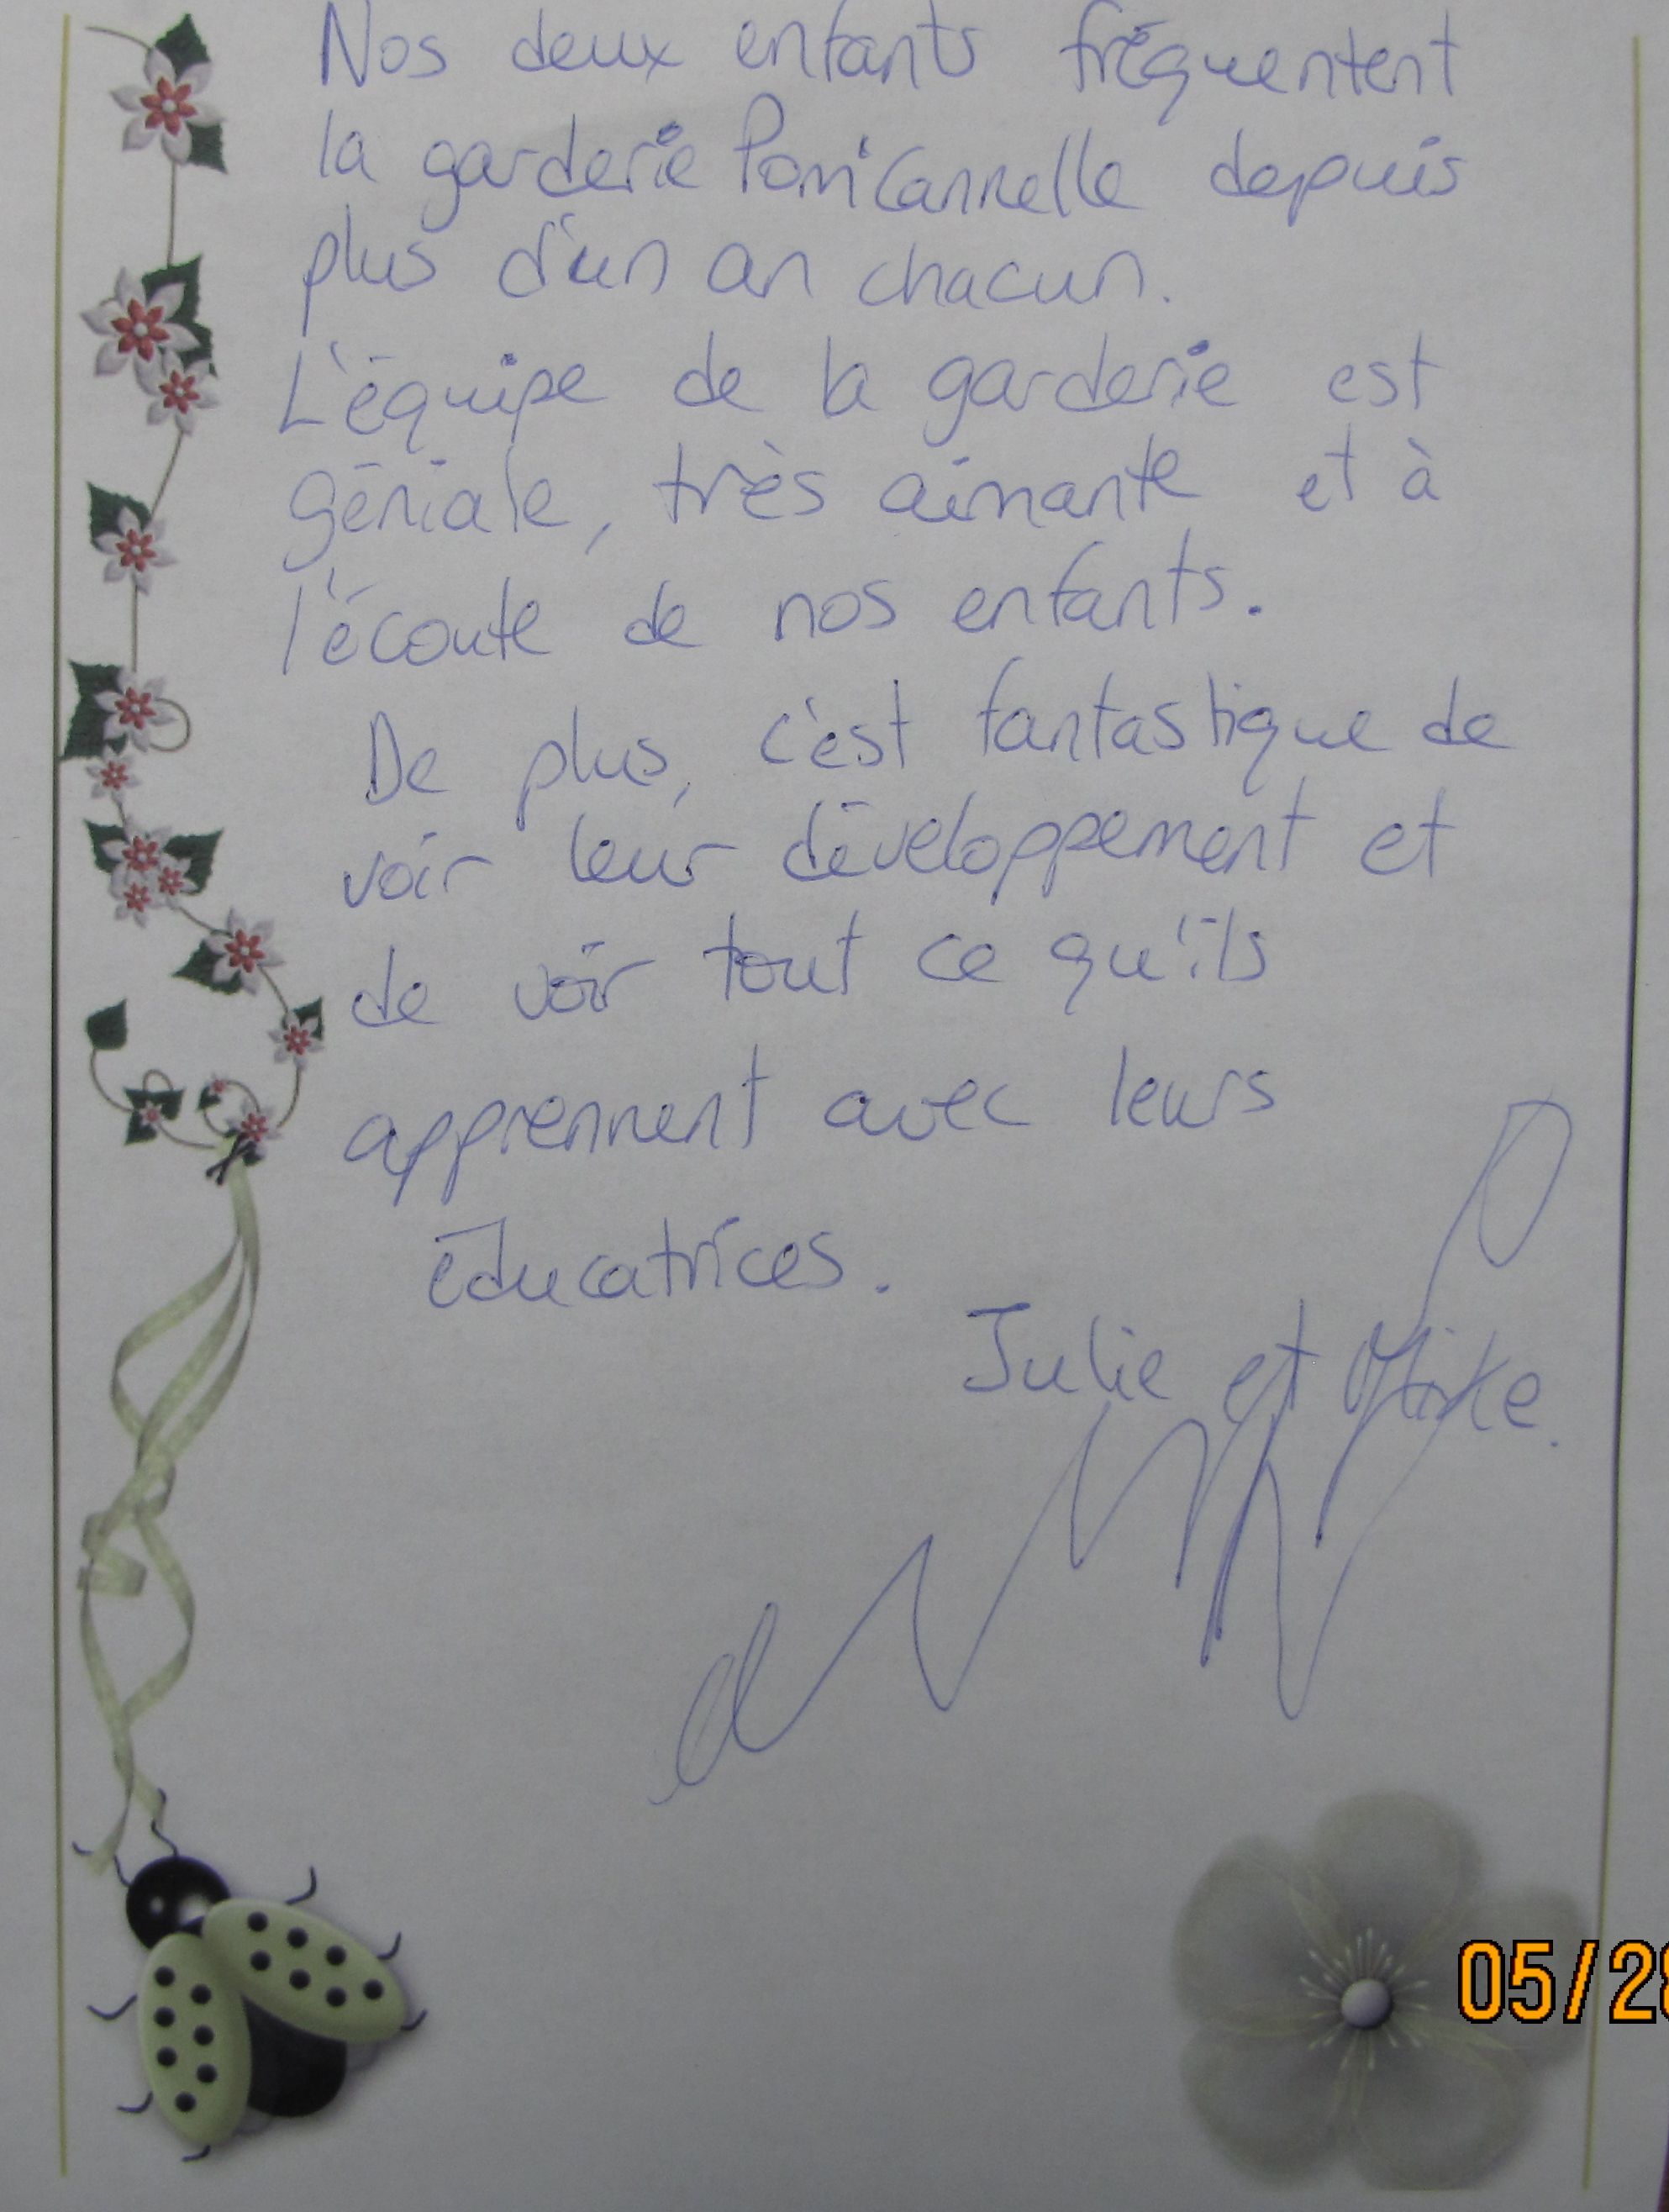 Nos deux enfants fréquentent
la garderie Pom'Cannelle depuis
plus d'un an chacun.
L'équipe de la garderie est
géniale, très aimante et à
l'écoute de nos enfants.
De plus, c'est fantastique de
voir leur développement et
de voir tout ce qu'ils
apprennent avec leurs
éducatrices.
Julie et Mike.
05/28